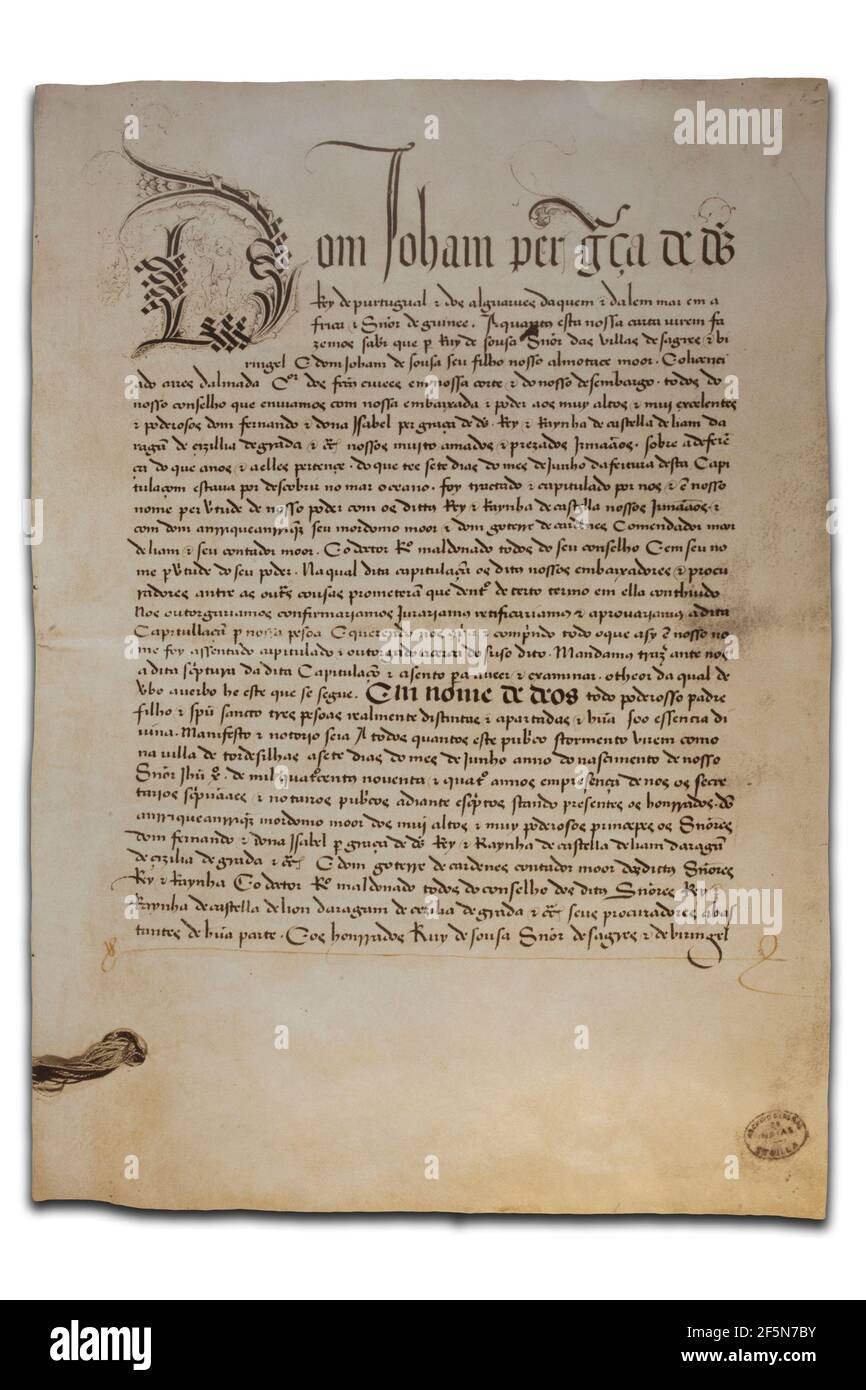 Dom Joham per gça de ds
Rey de purtugual & dos alguarues daquem & dalem mar em a
frica & Snor de guinee. A quantos esta nossa carta virem fa
zemos sabr que p Ruy de sousa Snor das villas de sagres & bi
ringel E dom Joham de sousa seu filho nosso almotace moor. Co licenci
ado aires dalmada Cor dos feitos ciuees em nossa corte & do nosso desembargo. todos do
nosso conselho que enviamos com nossa embaixada & poder aos muy altos & mui excelentes
& poderosos dom fernando & dona Isabel per graça de ds. Rey & Raynha de castella de liam da
ragam de cizillia de grada & cet nossos muito amados & prezados Irmaãos. sobre a deferen
ça do que a nos & a elles pertençe. do que tee sete dias do mes de Junho da feitura desta Capi
tulaçom estava por descobrir no mar oceano. foy tractado & capitulado por nos & e nosso
nome per vertude de nosso poder com os dittos Rey & Raynha de castella nossos Irmaãos. &
com dom anrrique anrriquez seu mordomo moor & dom goterre de cardenes Comendador moor
de liam & seu contador moor. Co doctor Ro maldonado todos do seu conselho E em seu no
me p vertude do seu poder. Na qual dita capitulaçam os ditos nossos embaixadores & procu
radores antre as outras cousas prometeram que dentro de certo termo em ella contheudo
Nos outorgariamos confirmariamos Jurariamos retificariamos & aprovariamos a dita
Capitullaçam p nossa pesoa E querendo nos & comprindo todo o que asy e nosso no
me foy assentado capitulado & outorgado acerca do suso dito. Mandamos trazer ante nos
a dita scriptura da dita Capitulaçom & asento pera a veer & examinar. o theor da qual de
verbo a verbo he este que se segue. Em nome de deos todo poderosso padre
filho & spu sancto tres pesoas realmente distintas & apartadas & hũa soo essencia di
vina. Manifesto & notorio seia A todos quantos este pubrico stormento virem como
na villa de tordesilhas a sete dias do mes de Junho anno do nascimento de nosso
Snor Ihu xpo de mil quatrocentos noventa & quatro annos em presença de nos os secre
tarios scprivaães & notarios pubricos adiante escriptos stando presentes os honrrados. dom
anrrique anrriquez mordomo moor dos mui altos & muy poderosos principes os Snores
dom fernando & dona Isabel p graça de ds Rey & Raynha de castella de liam daragam
de cizilia de grada & cet E dom goterre de cardenes contador moor dos ditos Snores
Rey & Raynha Co doctor Ro maldonado todos do conselho dos ditos Snores Rey &
Raynha de castella de lion daragam de cezilia de grada & cet seus procuradores abas
tantes de hũa parte. E os honrrados Ruy de sousa Snor de sagres & de biringel
ARCHIVO GENERAL
DE
INDIAS
SEVILLA
alamy
a
alamy
Image ID: 2F5N7BY
www.alamy.com